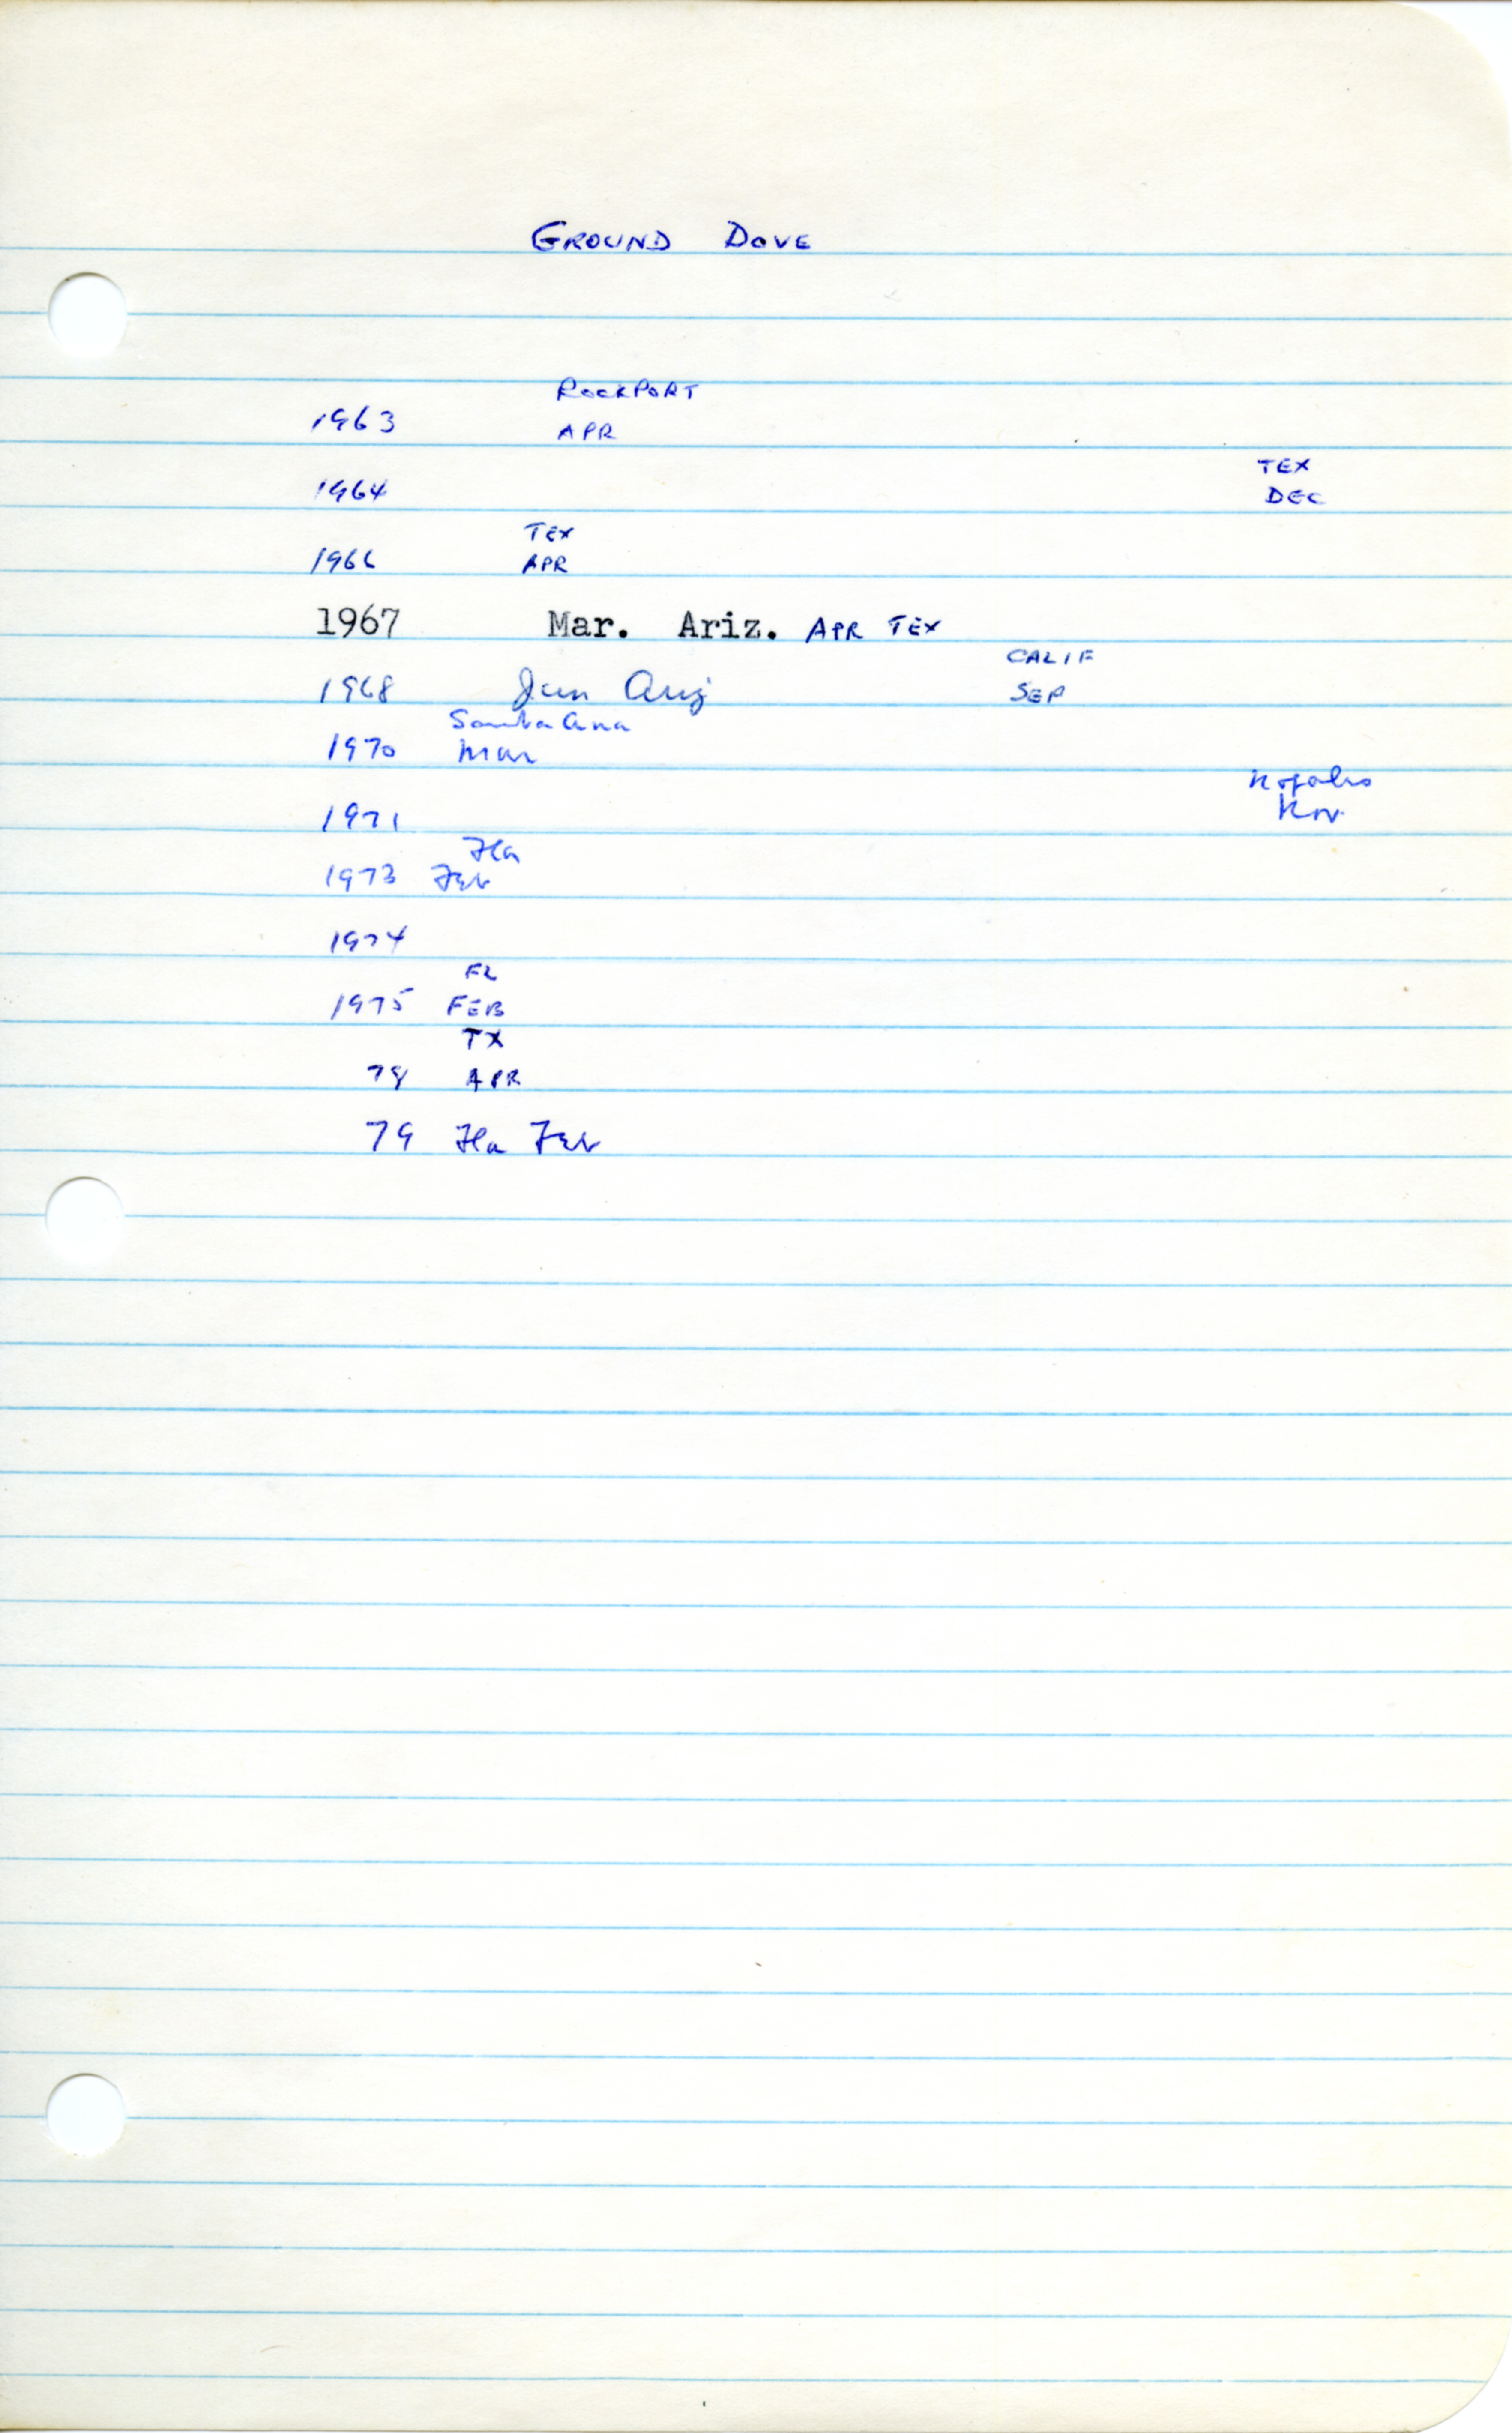 GROUND DOVE
ROCKPORT
1963 APR
TEX
1964 DEC
TEX
1966 APR
1967 Mar. Ariz. APR TEX
CALIF
1968 Jun Ariz SEP
Santa Ana
1970 Mar
Nogales
1971 Nov
Fla
1973 Feb
1974
FL
1975 FEB
TX
78 APR
79 Fla Feb